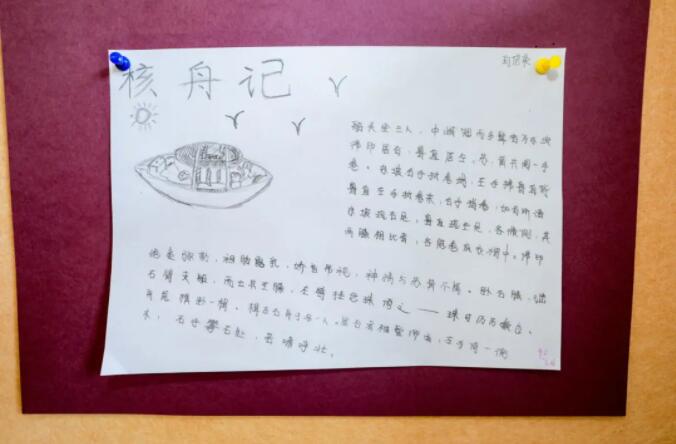 核舟记
船头坐三人，中峨冠而多髯者为东坡
佛印居右，鲁直居左，苏、黄共阅一手
卷。东坡右手执卷端，左手抚鲁直背
鲁直左手执卷末，右手指卷，如有所语
东坡现右足，鲁直现左足，各微侧，其
两膝相比者，各隐卷底衣褶中。佛印
绝类弥勒，袒胸露乳，矫首昂视，神情与苏黄不属。卧右膝，诎
右臂支船，而竖其左膝，左臂挂念珠倚之——珠可历历数也。
舟尾横卧一楫。楫左右舟子各一人。居右者椎髻仰面，左手倚一衡
木，右手攀右趾，若啸呼状。